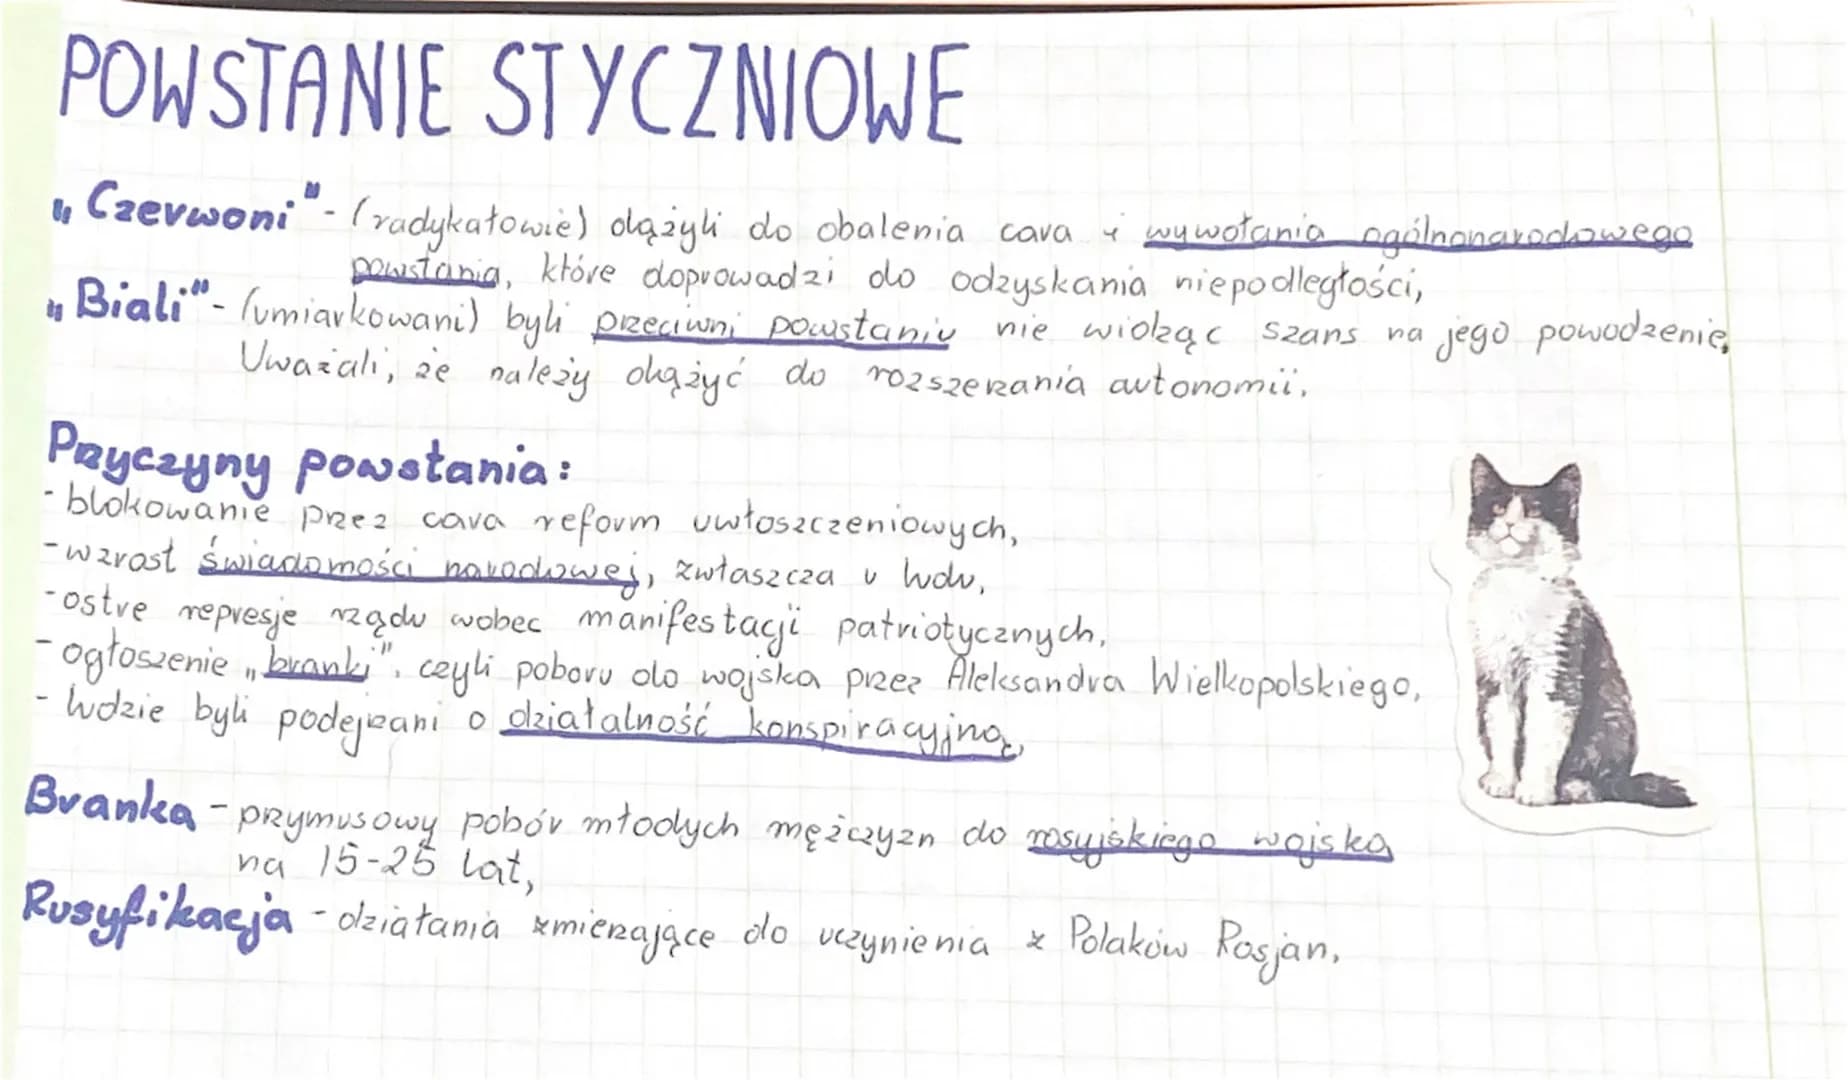 POWSTANIE STYCZNIOWE
„Czerwoni" - (radykałowie) dążyli do obalenia cara i wywołania ogólnonarodowego
powstania, które doprowadzi do odzyskania niepodległości,
„Biali" - (umiarkowani) byli przeciwni powstaniu nie widząc szans na jego powodzenie,
Uważali, że należy dążyć do rozszerzania autonomii.
Przyczyny powstania:
- blokowanie przez cara reform uwłoszczeniowych,
- wzrost świadomości narodowej, zwłaszcza u ludu,
- ostre represje rządu wobec manifestacji patriotycznych,
- ogłoszenie „branki", czyli poboru do wojska przez Aleksandra Wielkopolskiego,
- ludzie byli podejrzani o działalność konspiracyjną,
Branka - przymusowy pobór młodych mężczyzn do rosyjskiego wojska
na 15-25 lat,
Rusyfikacja - działania zmierzające do uczynienia z Polaków Rosjan,